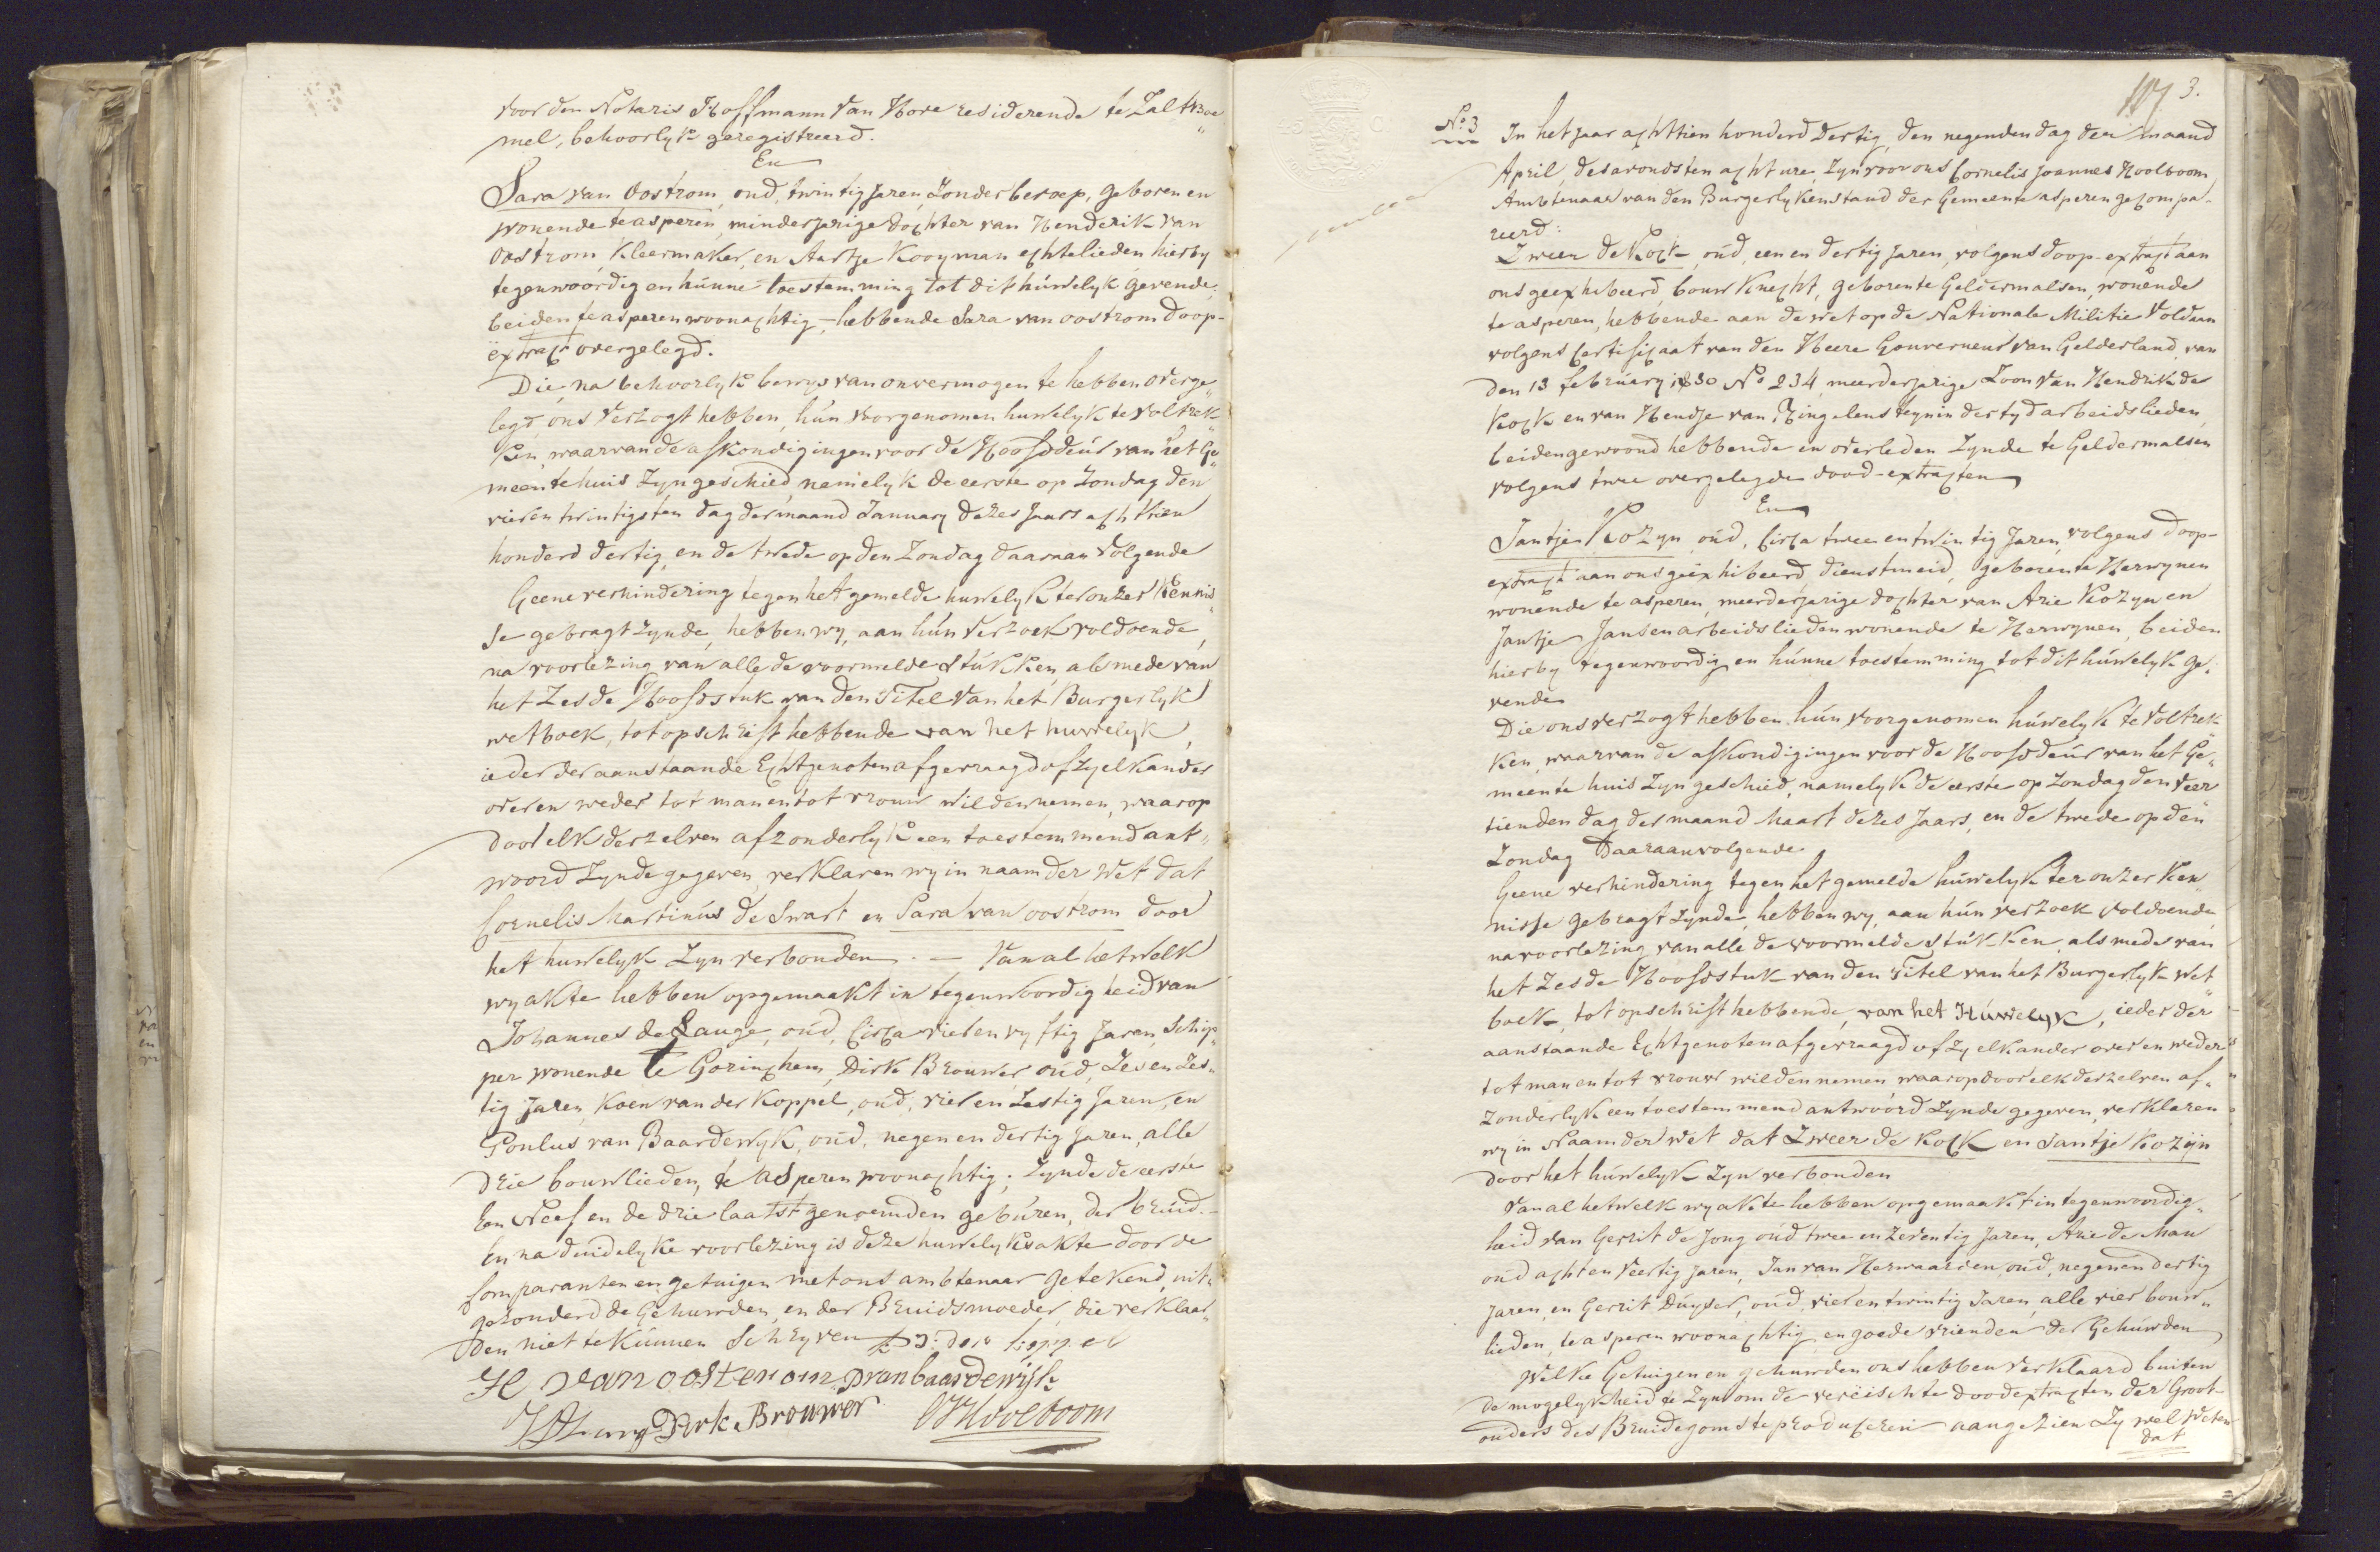 voor den Notaris Hoffmann van Hove resideerende te Zalt Boe„
mel, behoorlyk geregistreerd.
En
Sara van Oostrom, oud, twintig Jaren, Zonder beroep, geboren en
wonende te asperen, minderjarige dochter van Henderik van
Oostrom, Kleermaker, en Aartje Kooyman echtelieden hierby
tegenwoordig en hunne toestemming tot dit huwelyk gevende;
beiden te asperen woonachtig, – hebbende Sara van oostrom doop-
extract overgelegd.
Die, na behoorlyk bewys van onvermogen te hebben overge„
legd, ons verzogt hebben, hun voorgenomen huwelyk te voltrek„
ken, waarvan de afkondigingen voor de Hoofddeur van het Ge„
meentehuis zyn geschied, namelyk de eerste op Zondag den
vier en twintigsten dag der maand January dezes Jaars achttien
honderd dertig, en de twede op den Zondag daaraan volgende
Geene verhindering tegen het gemelde huwelyk ter onzer kennis„
se gebragt zynde, hebben wy, aan hun verzoek voldoende,
na voorlezing van alle de voormelde stukken, als mede van
het Zesde Hoofdstuk van den Titel van het Burgerlyk
wetboek, tot opschrift hebbende van het huwelyk,
ieder der aanstaande Echtgenoten afgevraagd of zy elkander
over en weder tot man en tot vrouw wilden nemen, waarop
door elk derzelven afzonderlyk een toestemmend ant„
woord zynde gegeven, verklaren wy in naam der wet dat
Cornelis Martinus de Swart en Sara van oostrom door
het huwelyk zyn verbonden. – Van al hetwelk
wy akte hebben opgemaakt in tegenwoordigheid van
Johannes de Lange, oud, circa vier en vyftig Jaren, Schip„
per wonende te Gorinchem, Dirk Brouwer, oud, Zes en Zes„
tig Jaren, Koen van der Koppel, oud, vier en Zestig Jaren, en
Poulus van Baardewyk, oud, negen en dertig Jaren, alle
drie bouwlieden, te asperen woonachtig; zynde de eerste
Een Neef en de drie laatstgenoemden geburen, der bruid. –
En na duidelyke voorlezing is deze huwelyksakte door de
Comparanten en getuigen met ons ambtenaar getekend, uit„
gezonderd de Gehuwden, en der Bruidsmoeder, die verklaar„
den niet te kunnen schryven
H van oosterom p van baardewijk
Dirk Brouwer CJHoolboom
3.
No. 3
In het Jaar achttien honderd dertig, den negenden dag der maand
April, des avonds ten acht ure, zyn voor ons Cornelis Joannes Hoolboom
Ambtenaar van den Burgerlyken stand der Gemeente asperen gecompa-
reerd:
Zweer de Kock, oud, een en dertig Jaren, volgens doop-extract aan
ons geexhibeerd, bouwknecht, geboren te Geldermalsen, wonende
te asperen, hebbende aan de wet op de Nationale Militie voldaan
volgens Certificaat van den Heere Gouverneur van Gelderland, van
den 13 february 1830 No 234, meerderjarige Zoon van Hendrik de
Kock en van Hendje van Ringelensteyn in der tyd arbeidslieden,
beiden gewoond hebbende en overleden zynde te Geldermalsen
volgens twee overgelegde dood-extracten
En
Jantje Kozyn oud, circa twee en twintig Jaren, volgens doop-
extract aan ons geëxhibeerd, dienstmeid, geboren te Herwynen
wonende te asperen, meerderjarige dochter van Arie Kozyn en
Jantje Jansen arbeidslieden wonende te Herwynen, beiden
hierby tegenwoordig en hunne toestemming tot dit huwelyk ge„
vende
Die ons verzogt hebben, hun voorgenomen huwelyk te voltrek„
ken, waarvan de afkondigingen voor de Hoofddeur van het Ge„
meente huis zyn geschied, namelyk de eerste op Zondag den veer„
tienden dag der maand Maart dezes Jaars, en de twede op den
Zondag daaraanvolgende
Geene verhindering tegen het gemelde huwelyk ter onzer ken„
nisse gebragt zynde, hebben wy, aan hun verzoek voldoende,
na voorlezing van alle de voormelde stukken, als mede van
het Zesde Hoofdstuk van den Titel van het Burgerlyk wet„
boek, tot opschrift hebbende, van het Huwelyk, ieder der
aanstaande Echtgenoten afgevraagd of zy elkander over en weder
tot man en tot vrouw wilden nemen waarop door elk derzelven af„
zonderlyk een toestemmend antwoord zynde gegeven, verklaren
wy in Naam der wet dat Zweer de Kock en Jantje Kozijn
door het huwelyk zyn verbonden
Van al hetwelk wy akte hebben opgemaakt in tegenwoordig„
heid van Gerrit de Jong oud twee en zeventig Jaren, Arie de Man
oud acht en veertig Jaren, Jan van Herwaarden, oud, negen en dertig
Jaren, en Gerrit Duyser, oud, vier en twintig Jaren, alle vier bouw„
lieden, te asperen woonachtig, en goede vrienden der Gehuwden
Welke Getuigen en gehuwden ons hebben verklaard buiten
de mogelykheid te zyn om de vereischte doodextracten der Groot-
ouders des Bruidegoms te produceren aangezien zy wel weten
dat